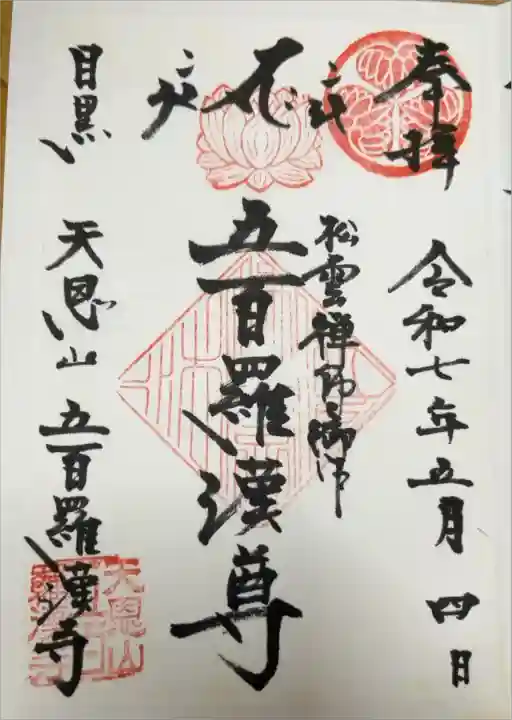 奉拝
令和七年五月四日
松雲禅師御作
五百羅漢尊
目黒 天恩山 五百羅漢寺
天恩山